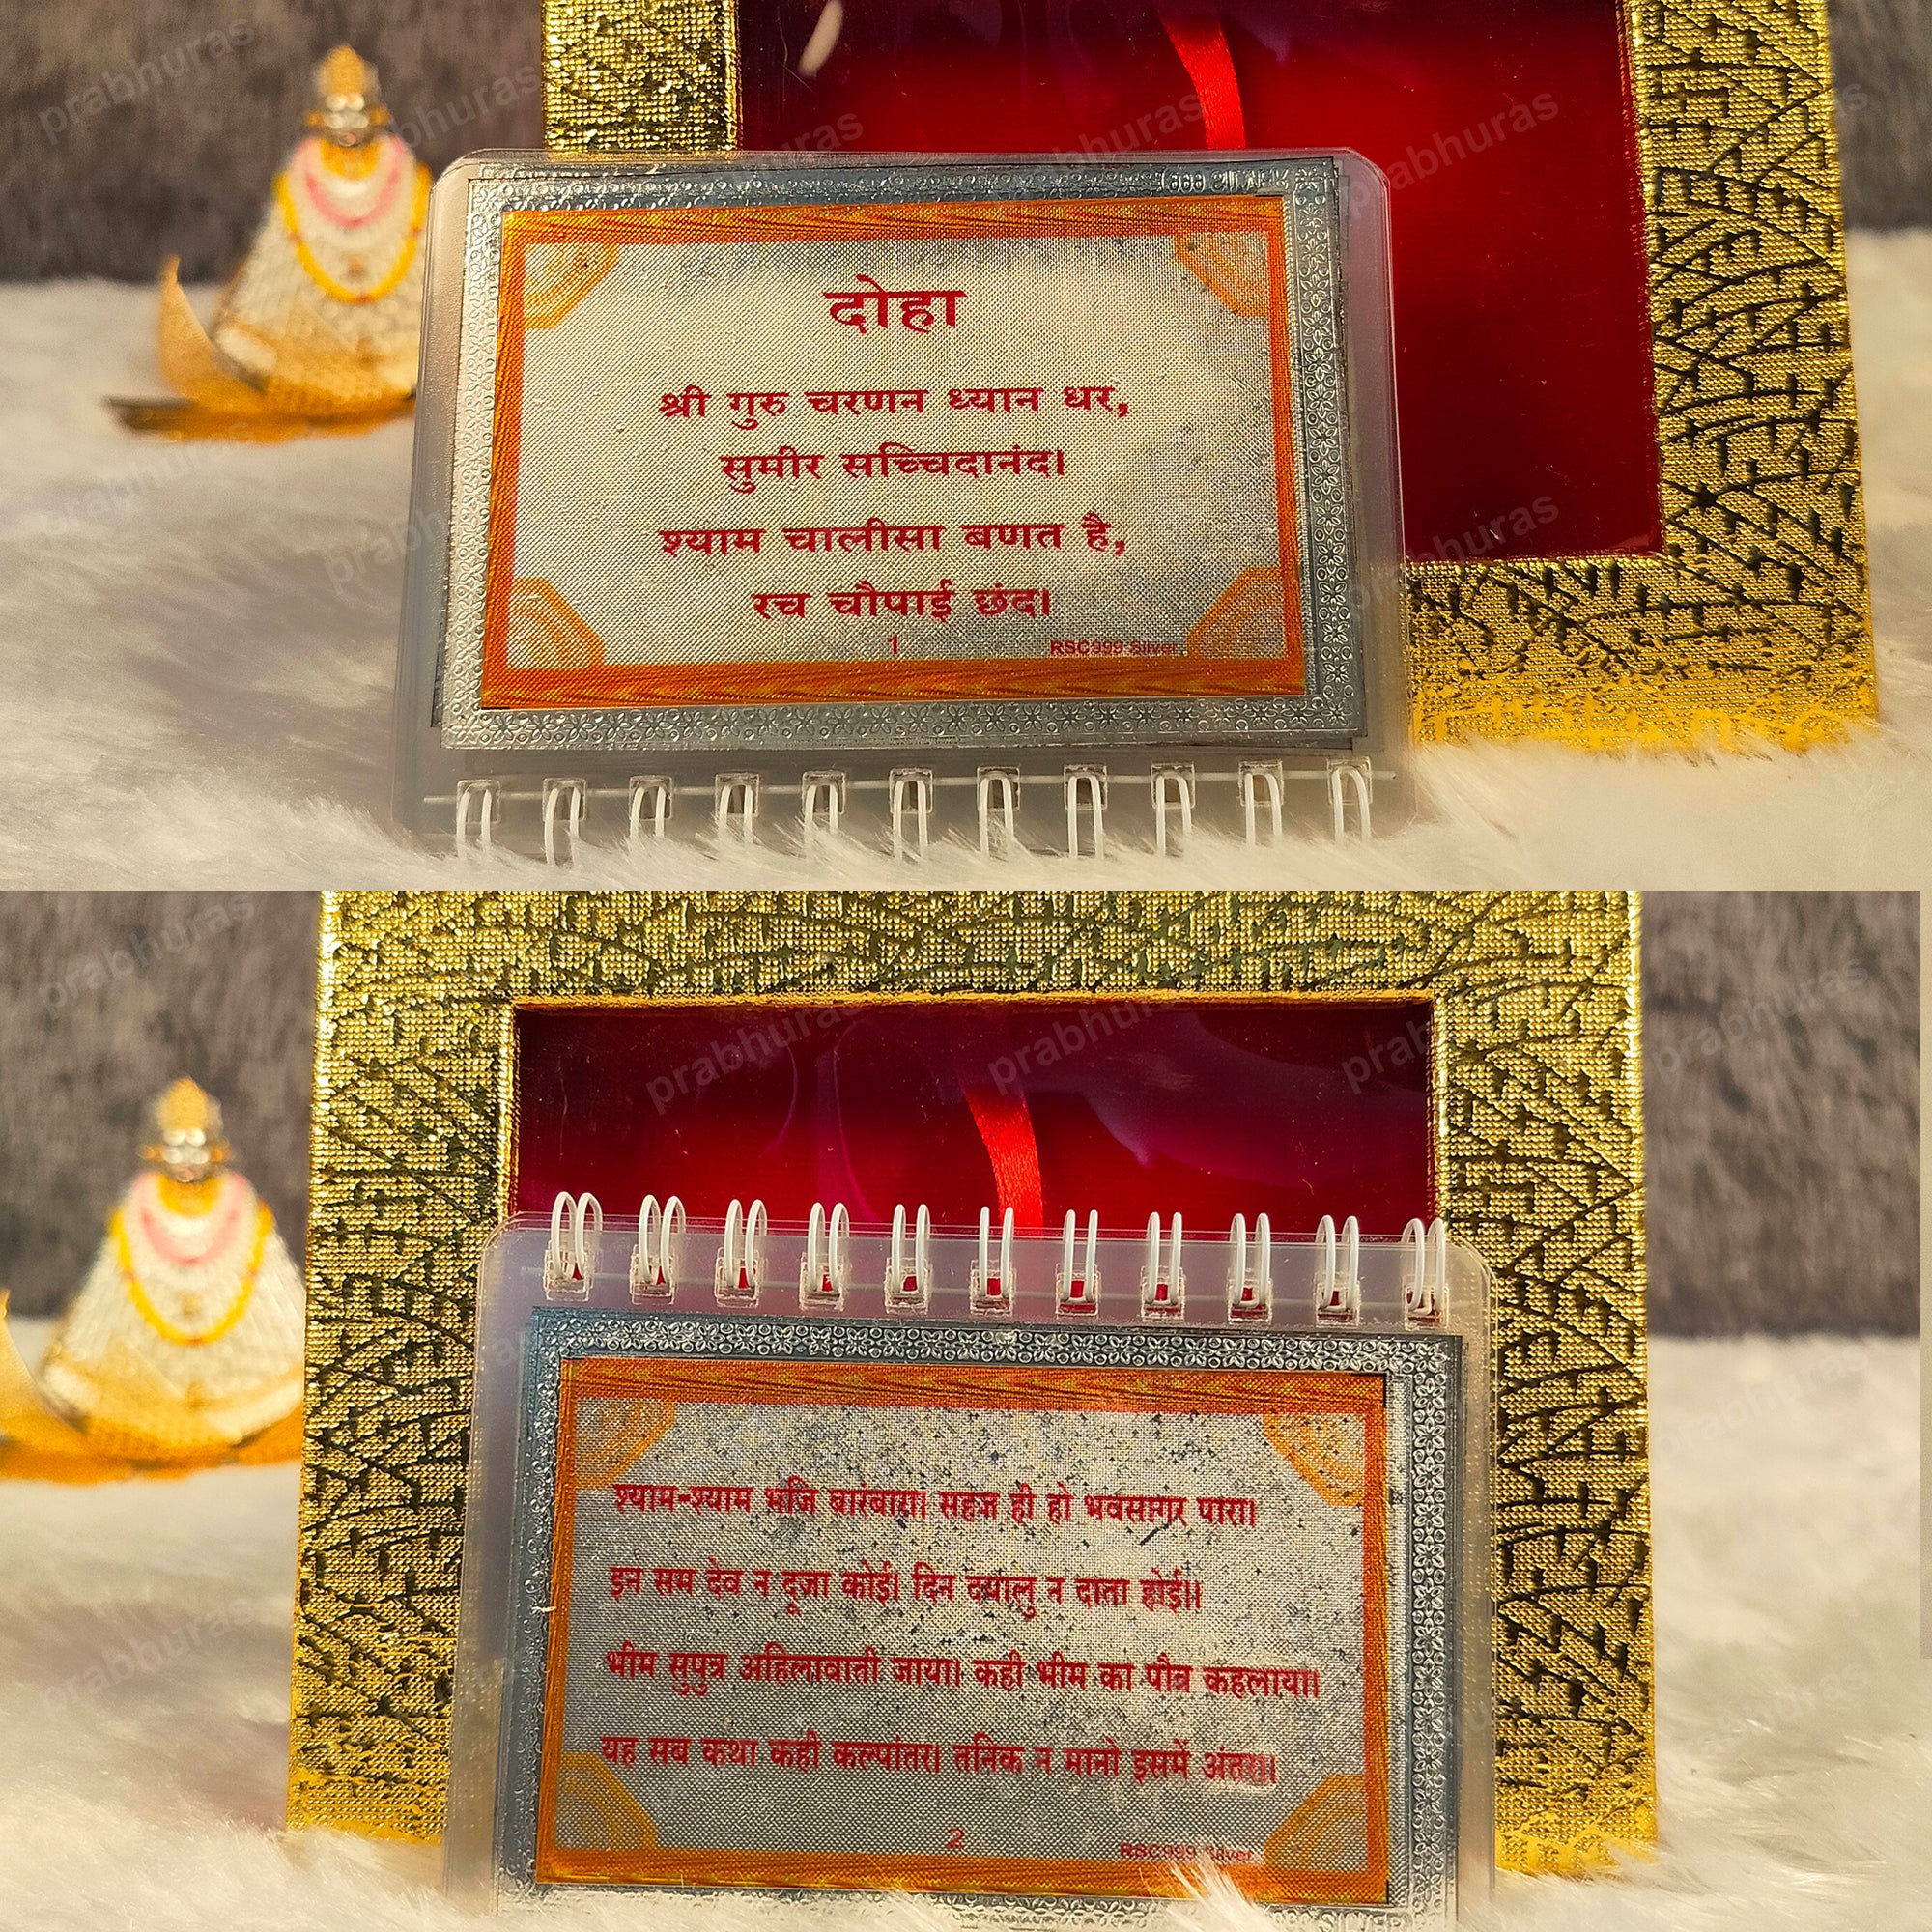 दोहा
श्री गुरु चरणन ध्यान धर,
सुमीर सच्चिदानंद।
श्याम चालीसा बणत है,
रच चौपाई छंद।
1
RSC999 Silver
श्याम-श्याम भजि बारंबारा। सहज ही हो भवसागर पारा।
इन सम देव न दूजा कोई। दिन दयालु न दाता होई॥
भीम सुपुत्र अहिलावाती जाया। कही भीम का पौत्र कहलाया॥
यह सब कथा कही कल्पांतर। तनिक न मानो इसमें अंतरा॥
2
RSC999 Silver
prabhuras